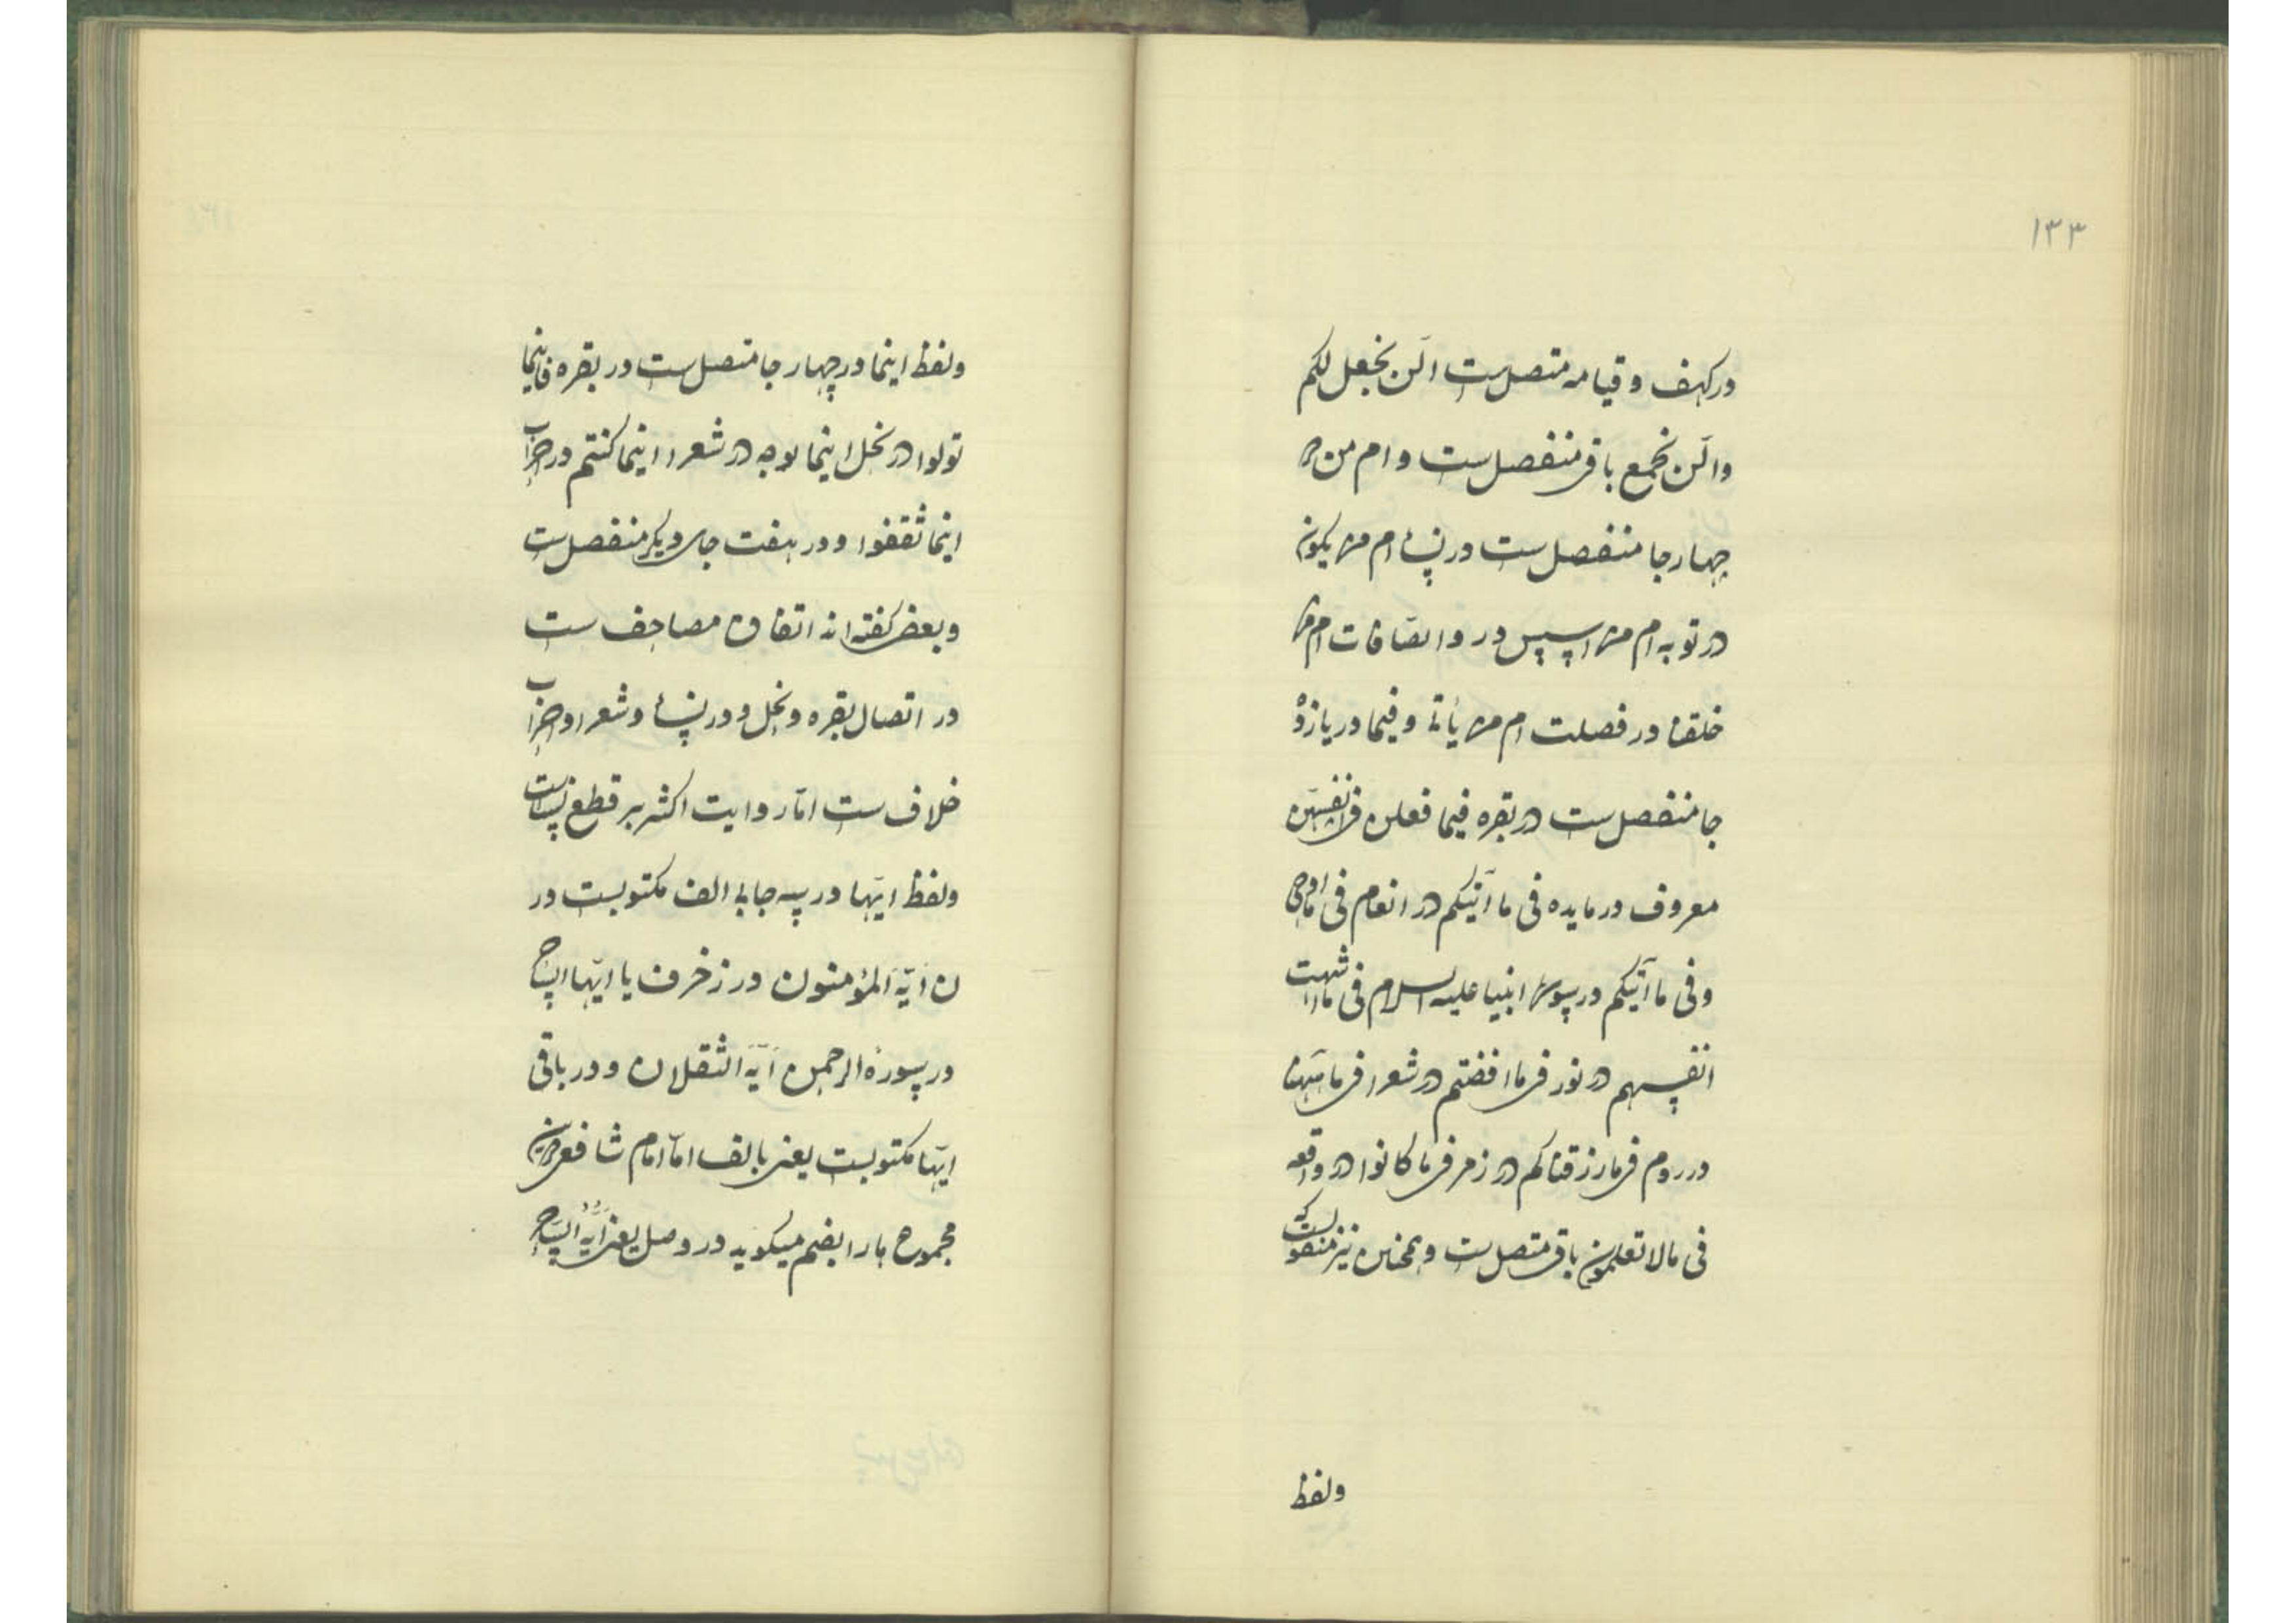 ۱۳۳
در کهف و قیامه متصل ست الّن نجعل لکم
و الّن نجمع باقی منفصل ست و ام من در
چهار جا منفصل ست در نسا ام من یکون
در توبه ام من اسس در و الصّافات ام من
خلقنا در فصلت ام من یأتی و فیما در یازده
جا منفصل ست در بقره فیما فعلن فی انفسهن
معروف در مایده فی ما آتیکم در انعام فی ما اوحی
و فی ما آتیکم در سوره انبیا علیه السلام فی ما اشتهت
انفسهم در نور فی ما افضتم در شعرا فی ما ههنا
در روم فی ما رزقناکم در زمر فی ما کانوا در واقعه
فی ما لا تعلمون باقی متصل ست و همچنین نیز منقولست که
ولفظ
ولفظ اینما در چهار جا متصل ست در بقره فاینما
تولوا در نحل اینما یوجه در شعرا اینما کنتم در احزاب
اینما ثقفوا و در هفت جای دیگر منفصل ست
و بعضی گفته اند اتفاق مصاحف ست
در اتصال بقره و نحل و در نسا و شعرا و احزاب
خلاف ست امّا روایت اکثر بر قطع نساست
ولفظ ایّها در سه جا بی الف مکتوبست در
ن ایّه المؤمنون در زخرف یا ایّها الساحر
در سورهٔ الرحمن ایّه الثقلان و در باقی
ایّها مکتوبست یعنی با الف امّا امام شافعی درین
مجموع ها را بضم میگوید در وصل یعنی ایّهُ الساحر